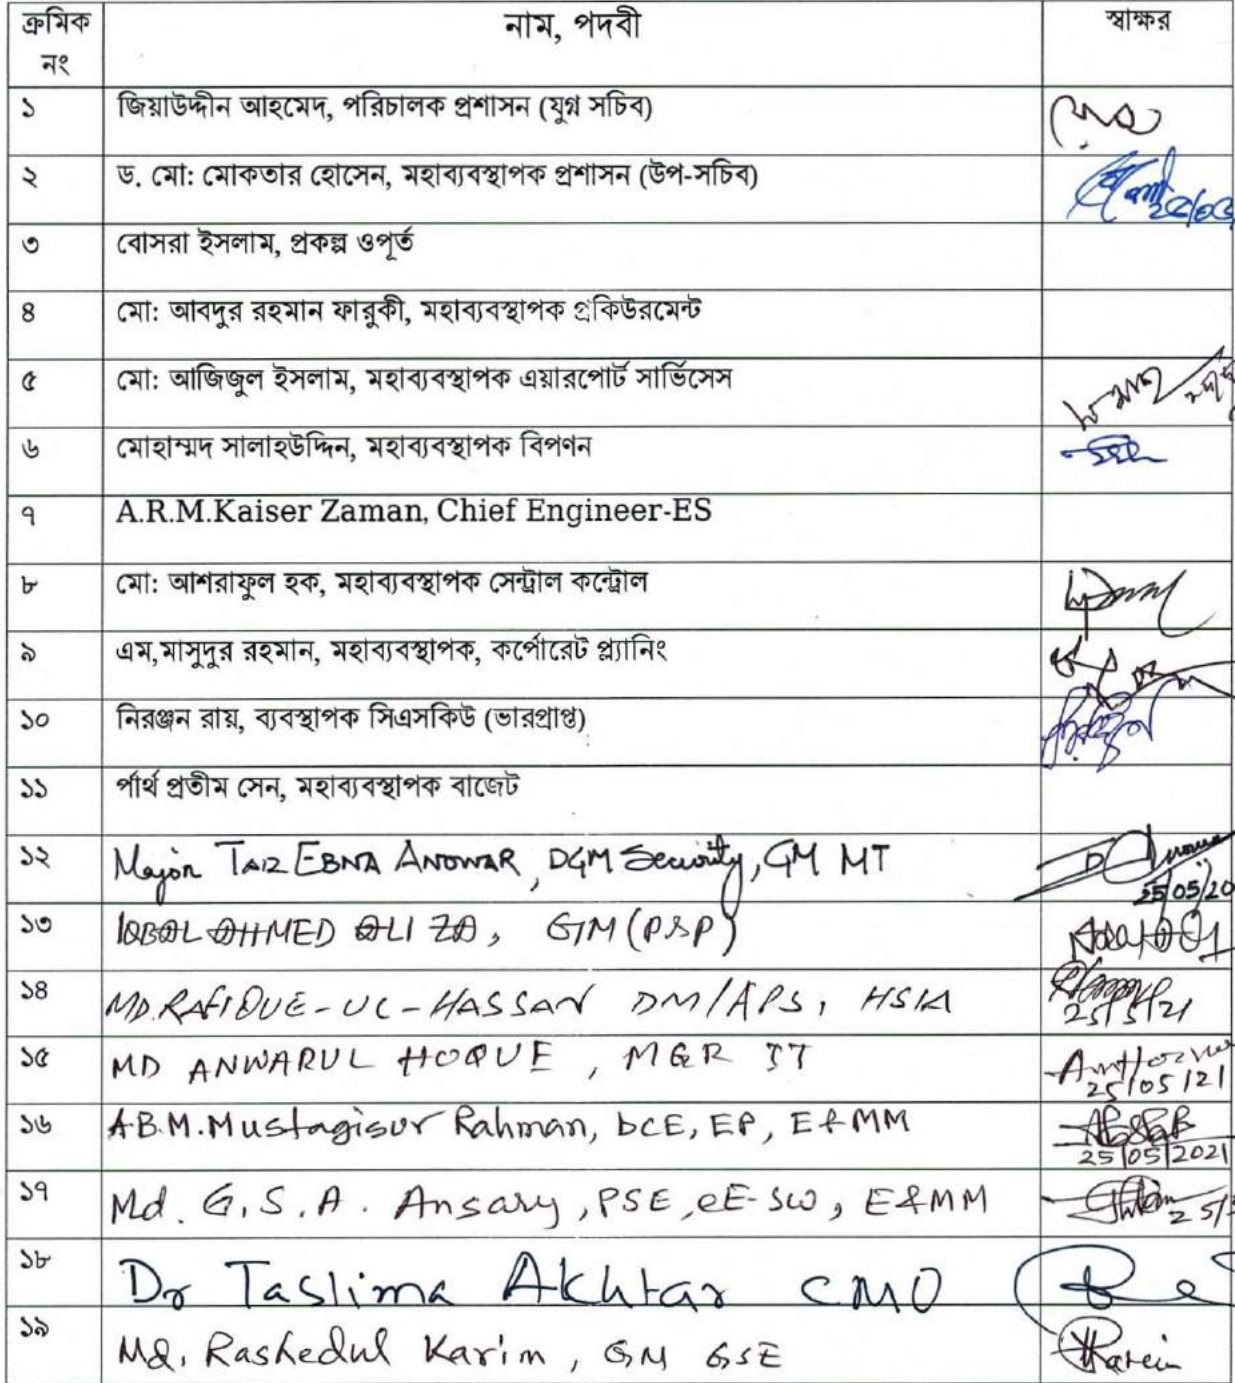 ক্রমিক নং নাম, পদবী স্বাক্ষর
১ জিয়াউদ্দীন আহমেদ, পরিচালক প্রশাসন (যুগ্ন সচিব)
২ ড. মো: মোকতার হোসেন, মহাব্যবস্থাপক প্রশাসন (উপ-সচিব)
৩ বোসরা ইসলাম, প্রকল্প ওপূর্ত
৪ মো: আবদুর রহমান ফারুকী, মহাব্যবস্থাপক প্রকিউরমেন্ট
৫ মো: আজিজুল ইসলাম, মহাব্যবস্থাপক এয়ারপোর্ট সার্ভিসেস
৬ মোহাম্মদ সালাহউদ্দিন, মহাব্যবস্থাপক বিপণন
৭ A.R.M.Kaiser Zaman, Chief Engineer-ES
৮ মো: আশরাফুল হক, মহাব্যবস্থাপক সেন্ট্রাল কন্ট্রোল
৯ এম,মাসুদুর রহমান, মহাব্যবস্থাপক, কর্পোরেট প্ল্যানিং
১০ নিরঞ্জন রায়, ব্যবস্থাপক সিএসকিউ (ভারপ্রাপ্ত)
১১ র্পাথ প্রতীম সেন, মহাব্যবস্থাপক বাজেট
১২ Major TAIZ EBNA ANOWAR, DGM Security, GM MT 25/05/20
১৩ IQBAL AHMED ALI ZA, GM (PSP)
১৪ MD. RAFIQUE-UL-HASSAN DM/APS, HSIA 25/5/21
১৫ MD ANWARUL HOQUE, MGR IT 25/05/21
১৬ A.B.M. Mustagisur Rahman, DCE, EP, E&MM 25/05/2021
১৭ Md. G.S.A. Ansary, PSE, eE-SW, E&MM 25/
১৮ Dr Taslima Akhtar CMO
১৯ Md. Rashedul Karim, GM GSE Karim